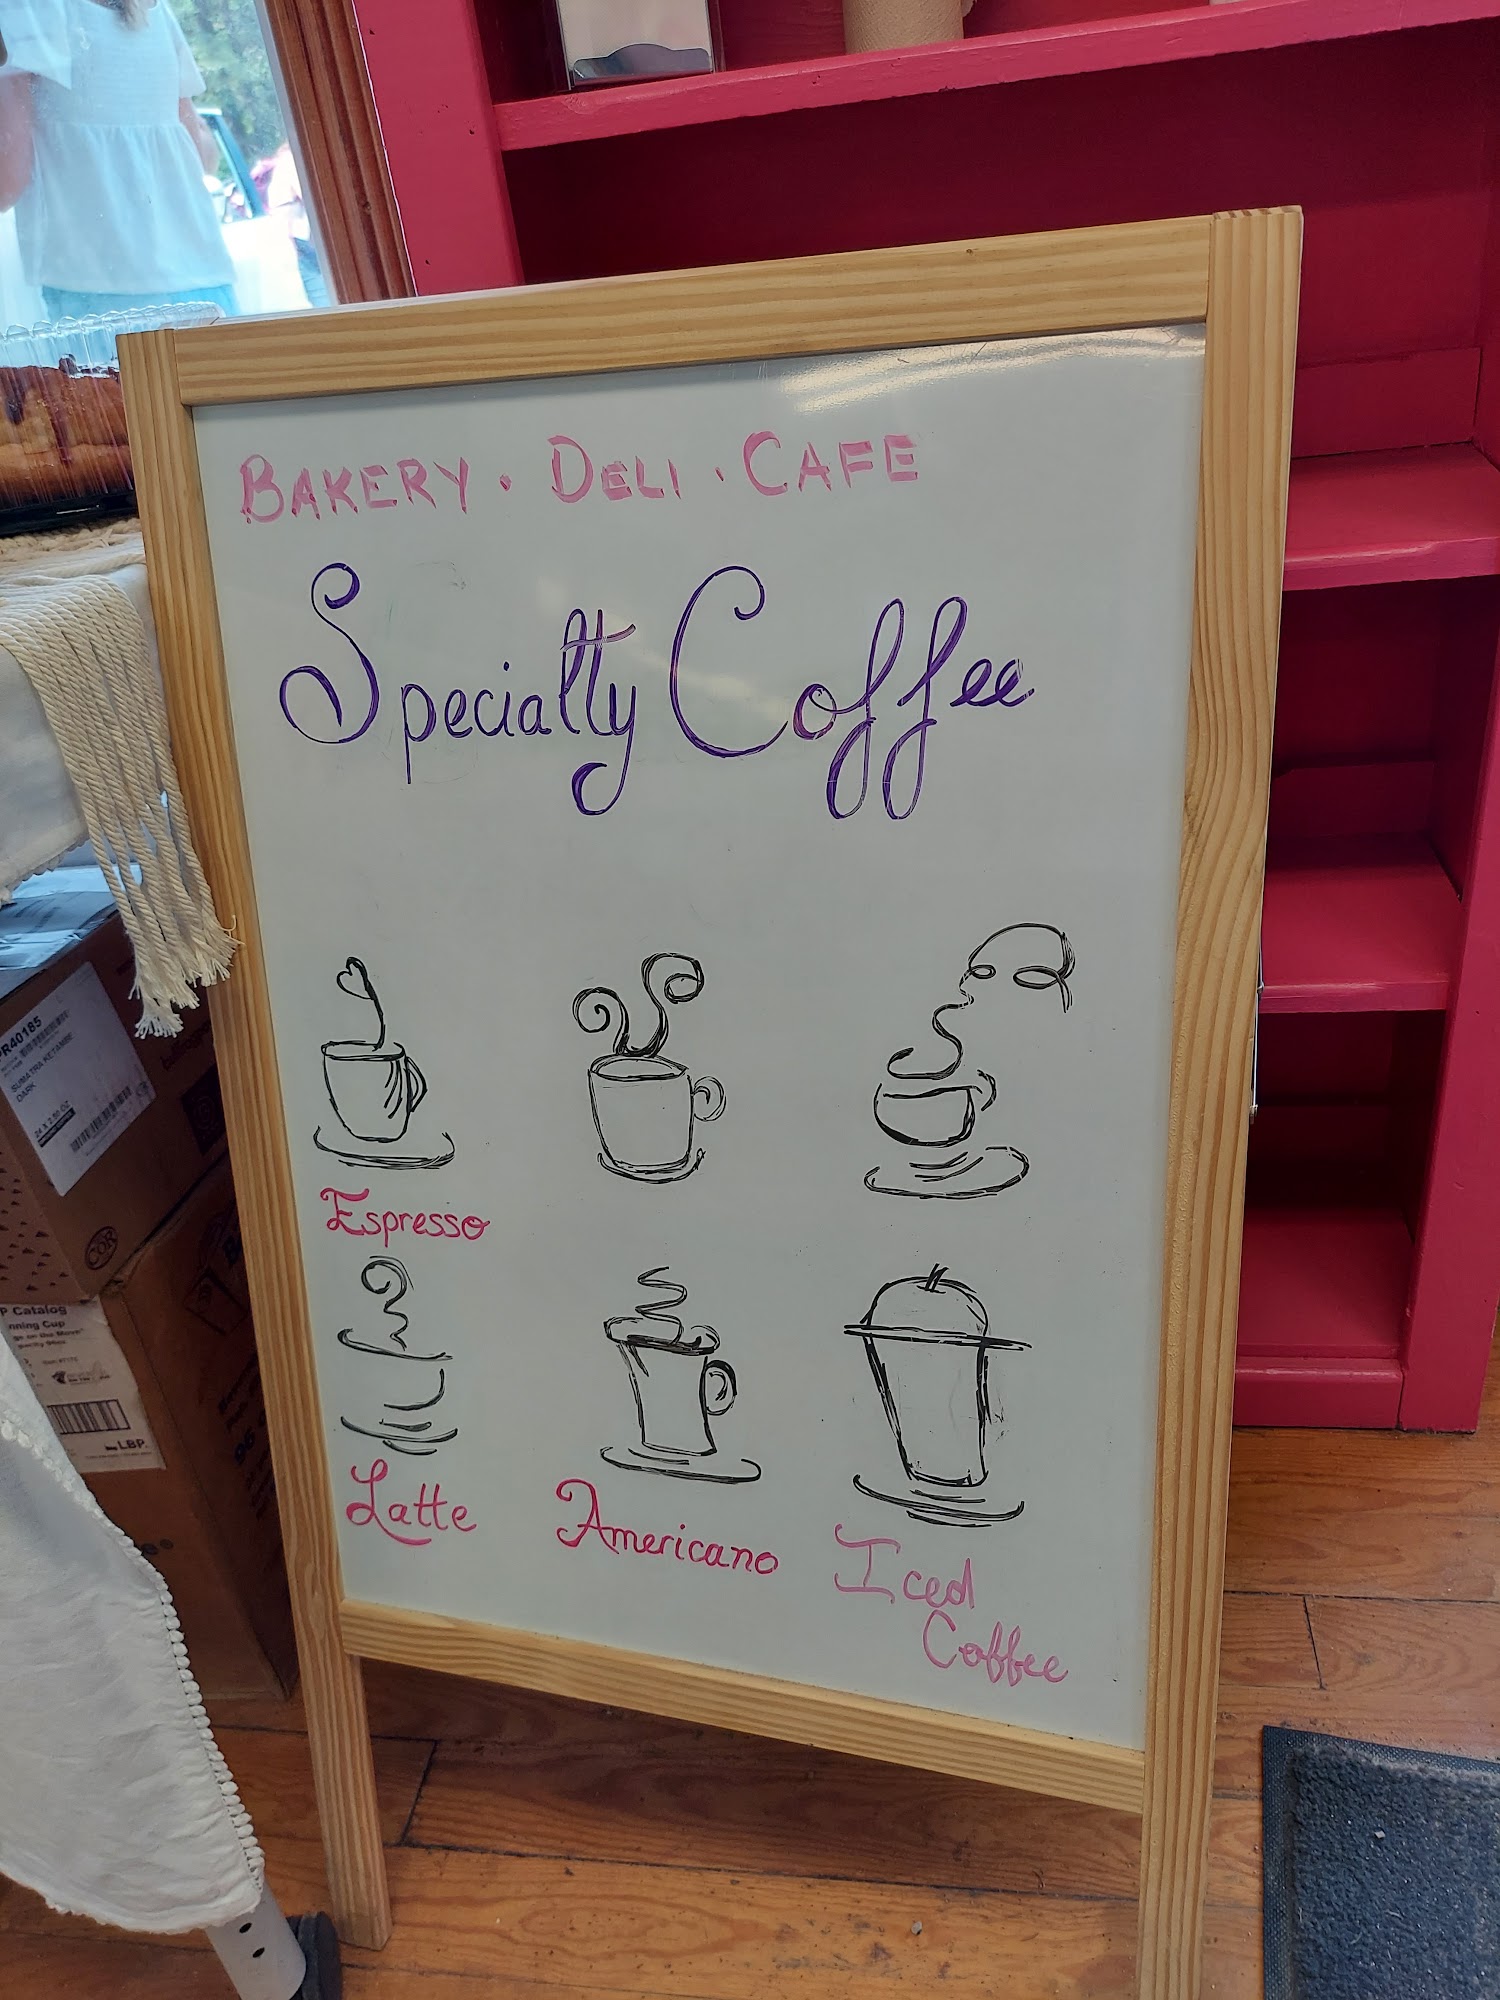 BAKERY · DELI · CAFE
Specialty Coffee
Espresso
Latte
Americano
Iced
Coffee
PR40185
SUMATRA KETAMBE
DARK
COR
P Catalog
nning Cup
ge on the Move
LBP.
96